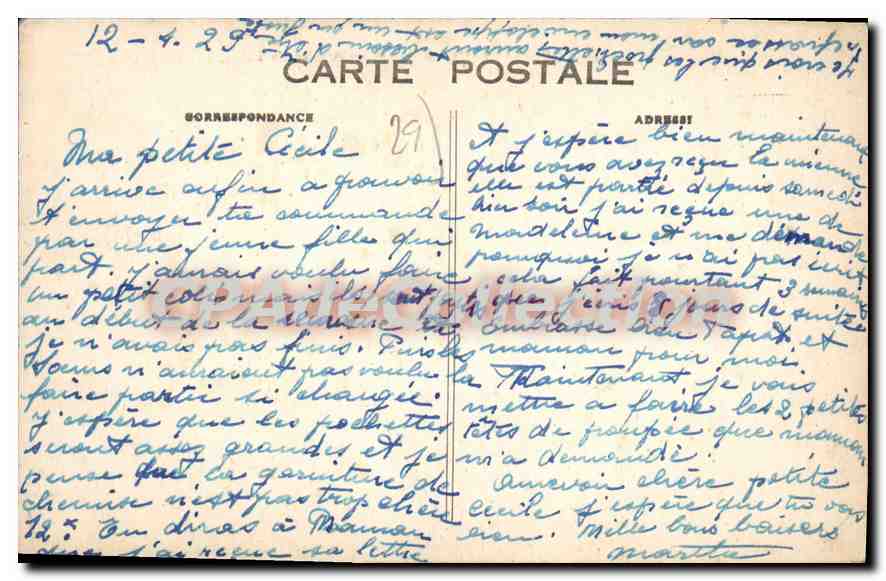 12 - 4. 29
CARTE POSTALE
CORRESPONDANCE
ADRESSE
29
Ma petite Cécile
j'arrive enfin a pouvoir
t'envoyer ta commande
par une jeune fille qui
part. j'aurais voulu faire
un petit colis mais
au début de la semaine
je n'avais pas finis. Puis les
Soeurs n'auraient pas voulu la
faire partir si chargée.
J'espère que les pochettes
seront assez grandes et je
pense que la garniture de
chemise n'est pas trop chère
12 x. Tu diras à Maman
que j'ai reçue sa lettre
Et j'espère bien maintenant
que vous avez reçu la mienne
elle est partie depuis samedi
hier soir j'ai reçue une de
Madeleine et me demande
pourquoi je n'ai pas écrit
cela fait pourtant 3 semaines
que j'écris 8 jours de suite
embrasse bien Papa et
maman pour moi
Maintenant je vais
mettre a faire les 2 petites
têtes de poupée que maman
m'a demandé.
Aurevoir chère petite
Cécile j'espère que tu vas
bien. Mille bons baisers
Marthe